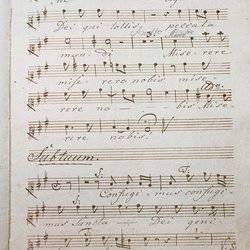 Dei qui tollis peccata
mun di Misere re
mise rere nobis mise
rere no bis Mise
rere nobis.
Subtuum.
Confugi mus confugi
mus Sancta Dei geni